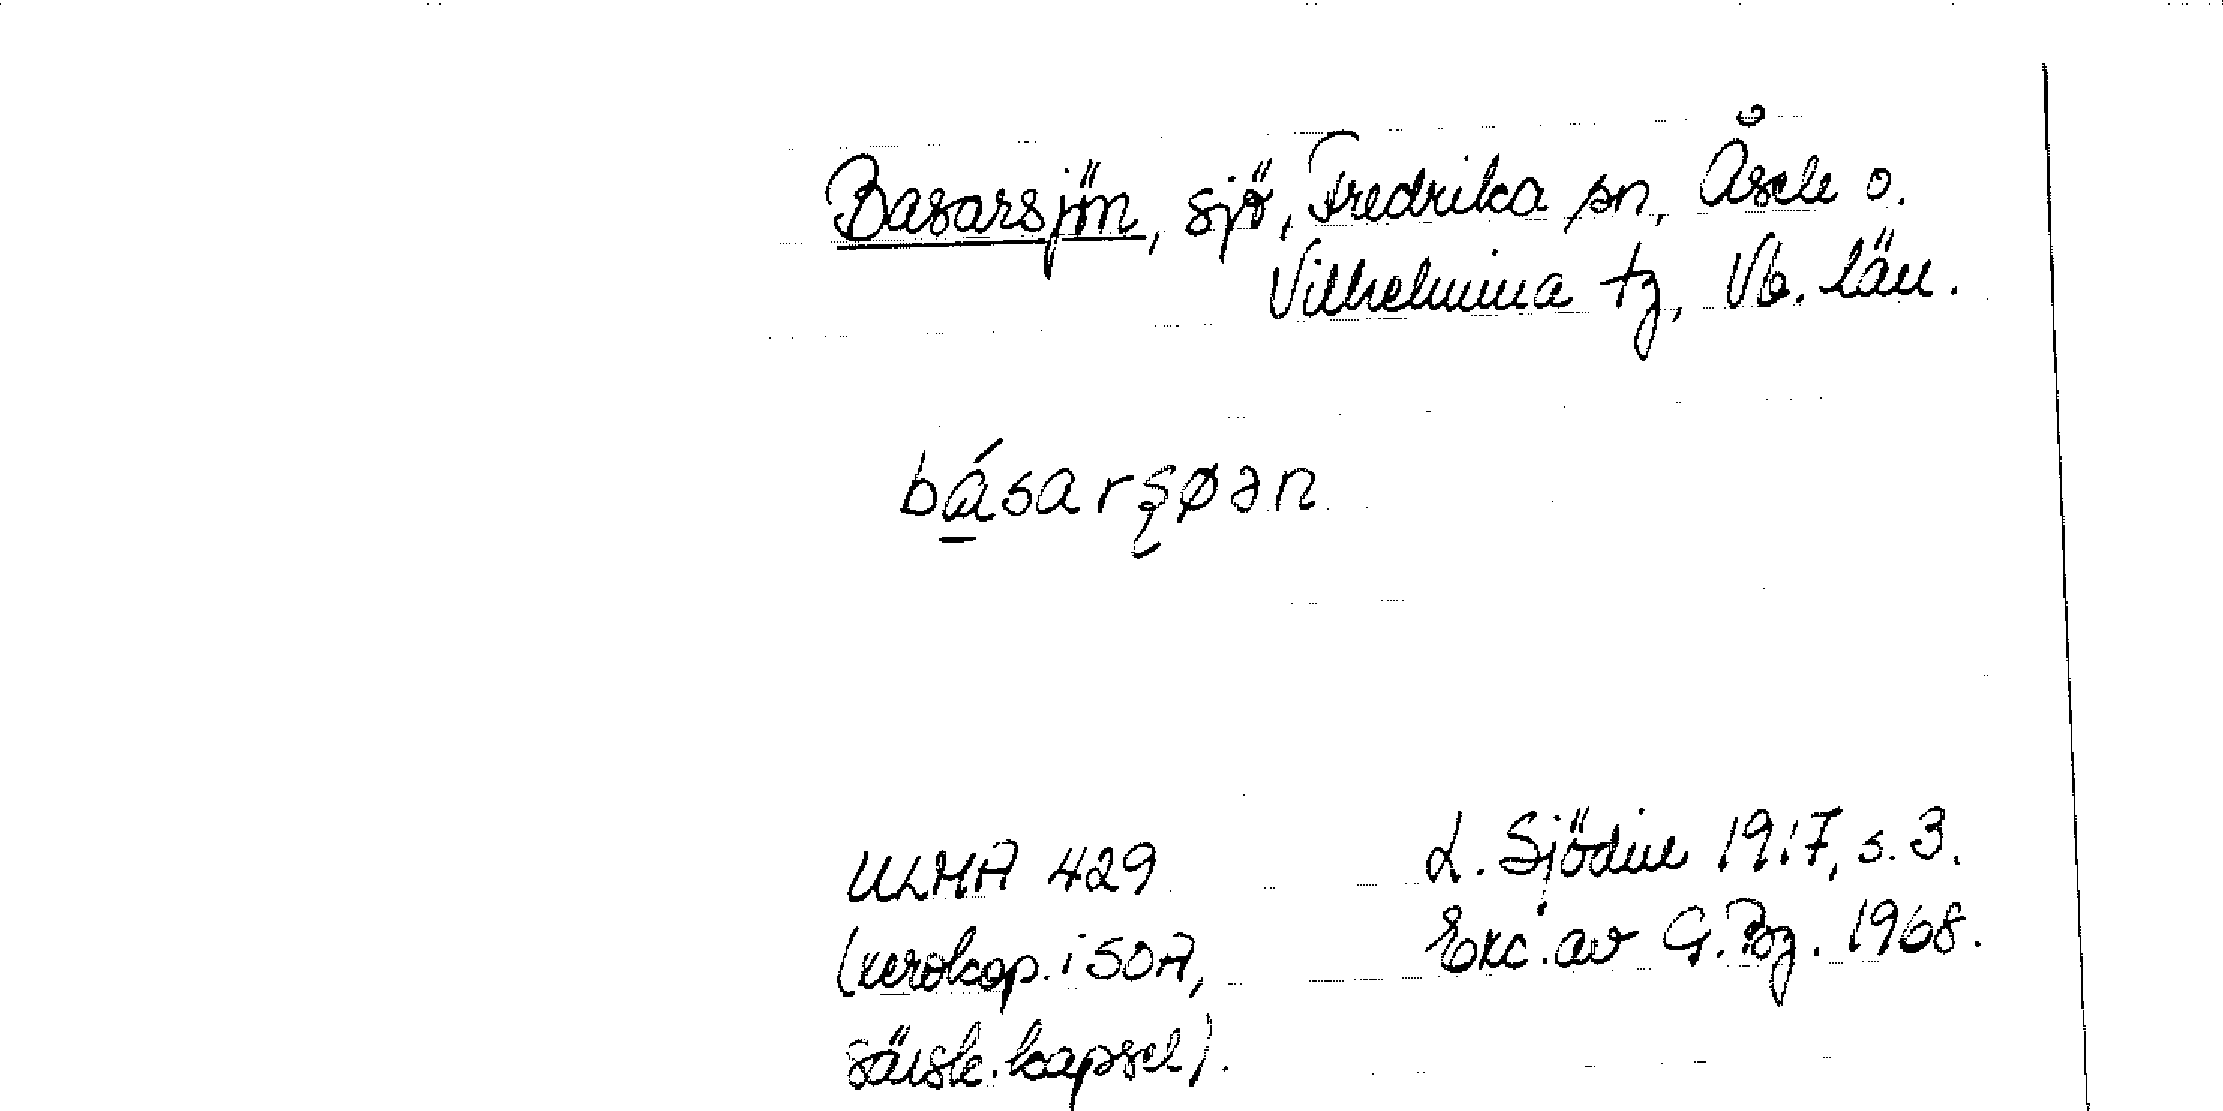 Basarsjön, sjö, Fredrika sn, Åsele o.
Vilhelmina tg, Vb. län.
bá̱sarşøən
ULMA 429
(xerokop. i SOA,
särsk. kapsel).
L. Sjödin 1917, s. 3.
Exc. av G. Bg. 1968.